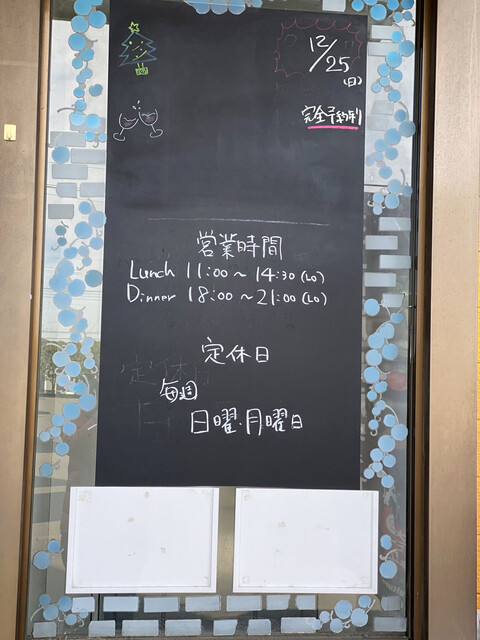 12/25
(日)
完全予約制
営業時間
Lunch 11:00～14:30(LO)
Dinner 18:00～21:00(LO)
定休日
毎週
日曜・月曜日